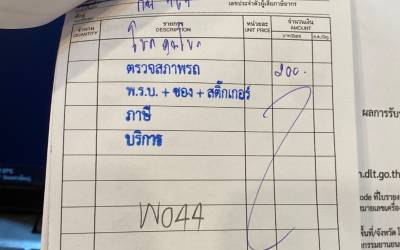 เลขประจำตัวผู้เสียภาษีอากร
จำนวน QUANTITY รายการ DESCRIPTION หน่วยละ UNIT PRICE จำนวนเงิน AMOUNT
ตรวจสภาพรถ 200.-
พ.ร.บ. + ซอง + สติ๊กเกอร์
ภาษี
บริการ
W044
ผลการรับ
.dlt.go.th
ode ที่ใบราย
หมายเลขเครื่อง